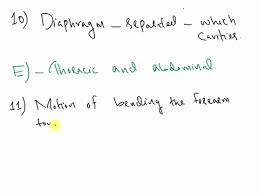 10) Diaphragm _ separated _ which
cavities.
E) _ Thoracic and abdominal
11) Motion of bending the forearm
tow